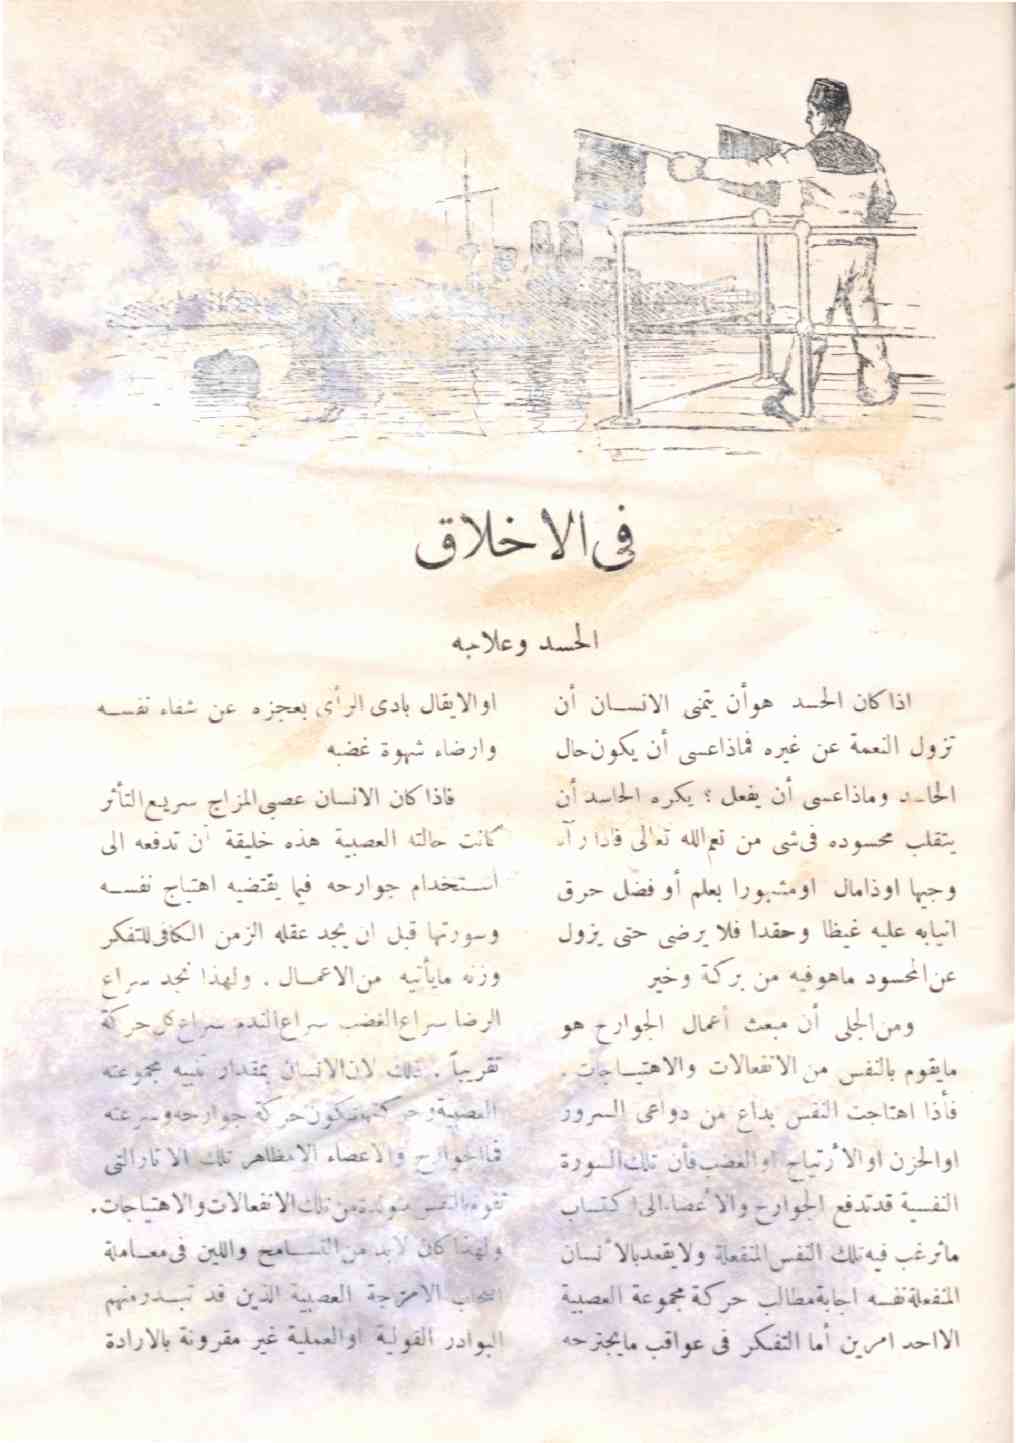 فى الاخلاق
الحسد وعلاجه
اذا كان الحسد هو أن يتمنى الانسان أن
تزول النعمة عن غيره فماذا عسى أن يكون حال
الحاسد وماذا عسى أن يفعل ؟ يكره الحاسد أن
يتقلب محسوده فى شى من نعم الله تعالى فاذا رآه
وجيها او ذا مال او مشهورا بعلم أو فضل حرق
انيابه عليه غيظا وحقدا فلا يرضى حتى يزول
عن المحسود ما هو فيه من بركة وخير
ومن الجلى أن مبعث أعمال الجوارح هو
ما يقوم بالنفس من الانفعالات والاهتياجات .
فأذا اهتاجت النفس بداع من دواعى السرور
او الحزن او الأرتياح او الغضب فأن تلك السورة
النفسية قد تدفع الجوارح والأعضاء الى اكتساب
ما ترغب فيه تلك النفس المنفعلة ولا يقعد بالأنسان
المنفعلة نفسه اجابة مطالب حركة مجموعة العصبية
الا احد امرين أما التفكر فى عواقب ما يجترحه
او الا يقال بادى الرأى بعجزه عن شفاء نفسه
وارضاء شهوة غضبه
فاذا كان الانسان عصبى المزاج سريع التأثر
كانت حالته العصبية هذه خليقة أن تدفعه الى
استخدام جوارحه فيما يقتضيه اهتياج نفسه
وسورتها قبل ان يجد عقله الزمن الكافى للتفكر
وزنه ما يأتيه من الاعمال . ولهذا تجد سراع
الرضا سراع الغضب سراع الندم سراع كل حركة
تقريباً . ذلك لان الانسان بمقدار تنبيه مجموعته
العصبية وحركتها تكون حركة جوارحه وسرعته
فما الجوارح والاعضاء الا مظاهر تلك الاثار التى
تقوم بالنفس متولدة من تلك الانفعالات والاهتياجات .
ولهذا كان لابد من التسامح واللين فى معاملة
اصحاب الامزجة العصبية الذين قد تبدر منهم
البوادر القولية او العملية غير مقرونة بالارادة